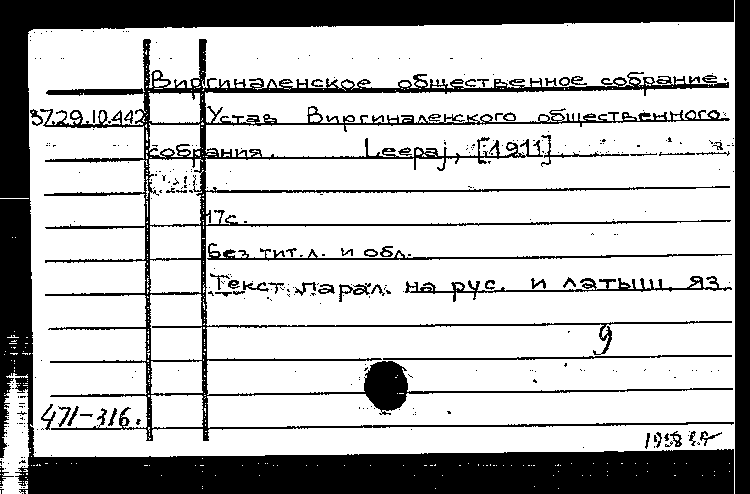 Виргиналенское общественное собрание.
37.29.10.442 Устав Виргиналенского общественного
собрания. Leepaj, [1911].
17с.
Без тит.л. и обл.
Текст парал. на рус. и латыш. яз.
9
471-316.
1958